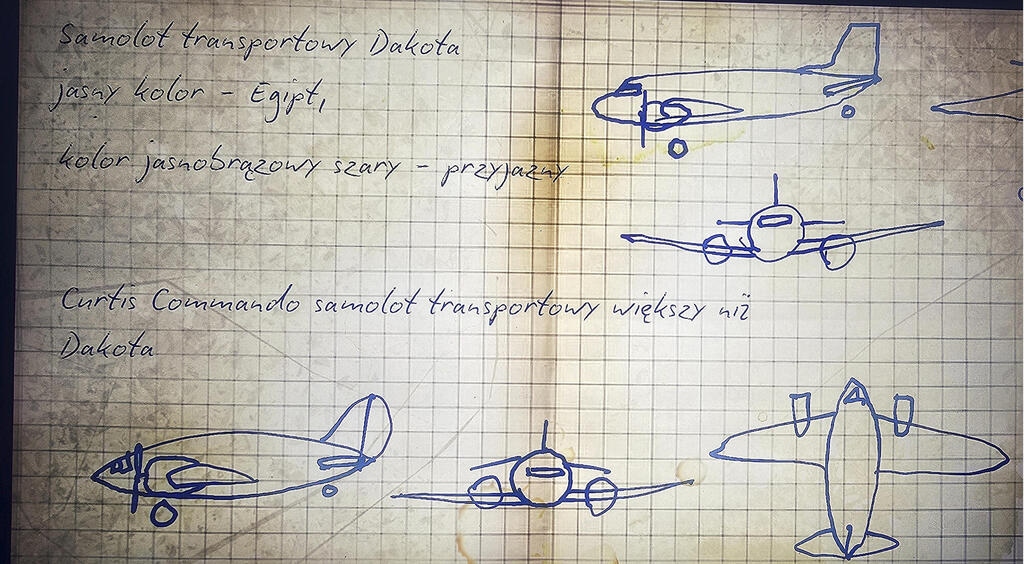 Samolot transportowy Dakota
jasny kolor - Egipt,
kolor jasnobrązowy szary - przyjazny
Curtis Commando samolot transportowy większy niż
Dakota